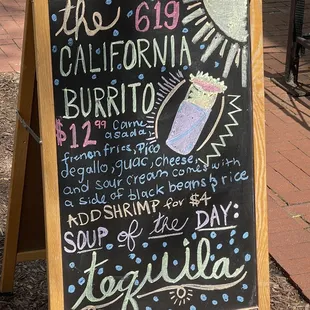 the 619
CALIFORNIA
BURRITO
$12.99 Carne
asada,
french fries, Pico
degallo, guac, cheese,
and sour cream comes with
a side of black beans & rice
ADD SHRIMP for $4
SOUP of the DAY:
tequila